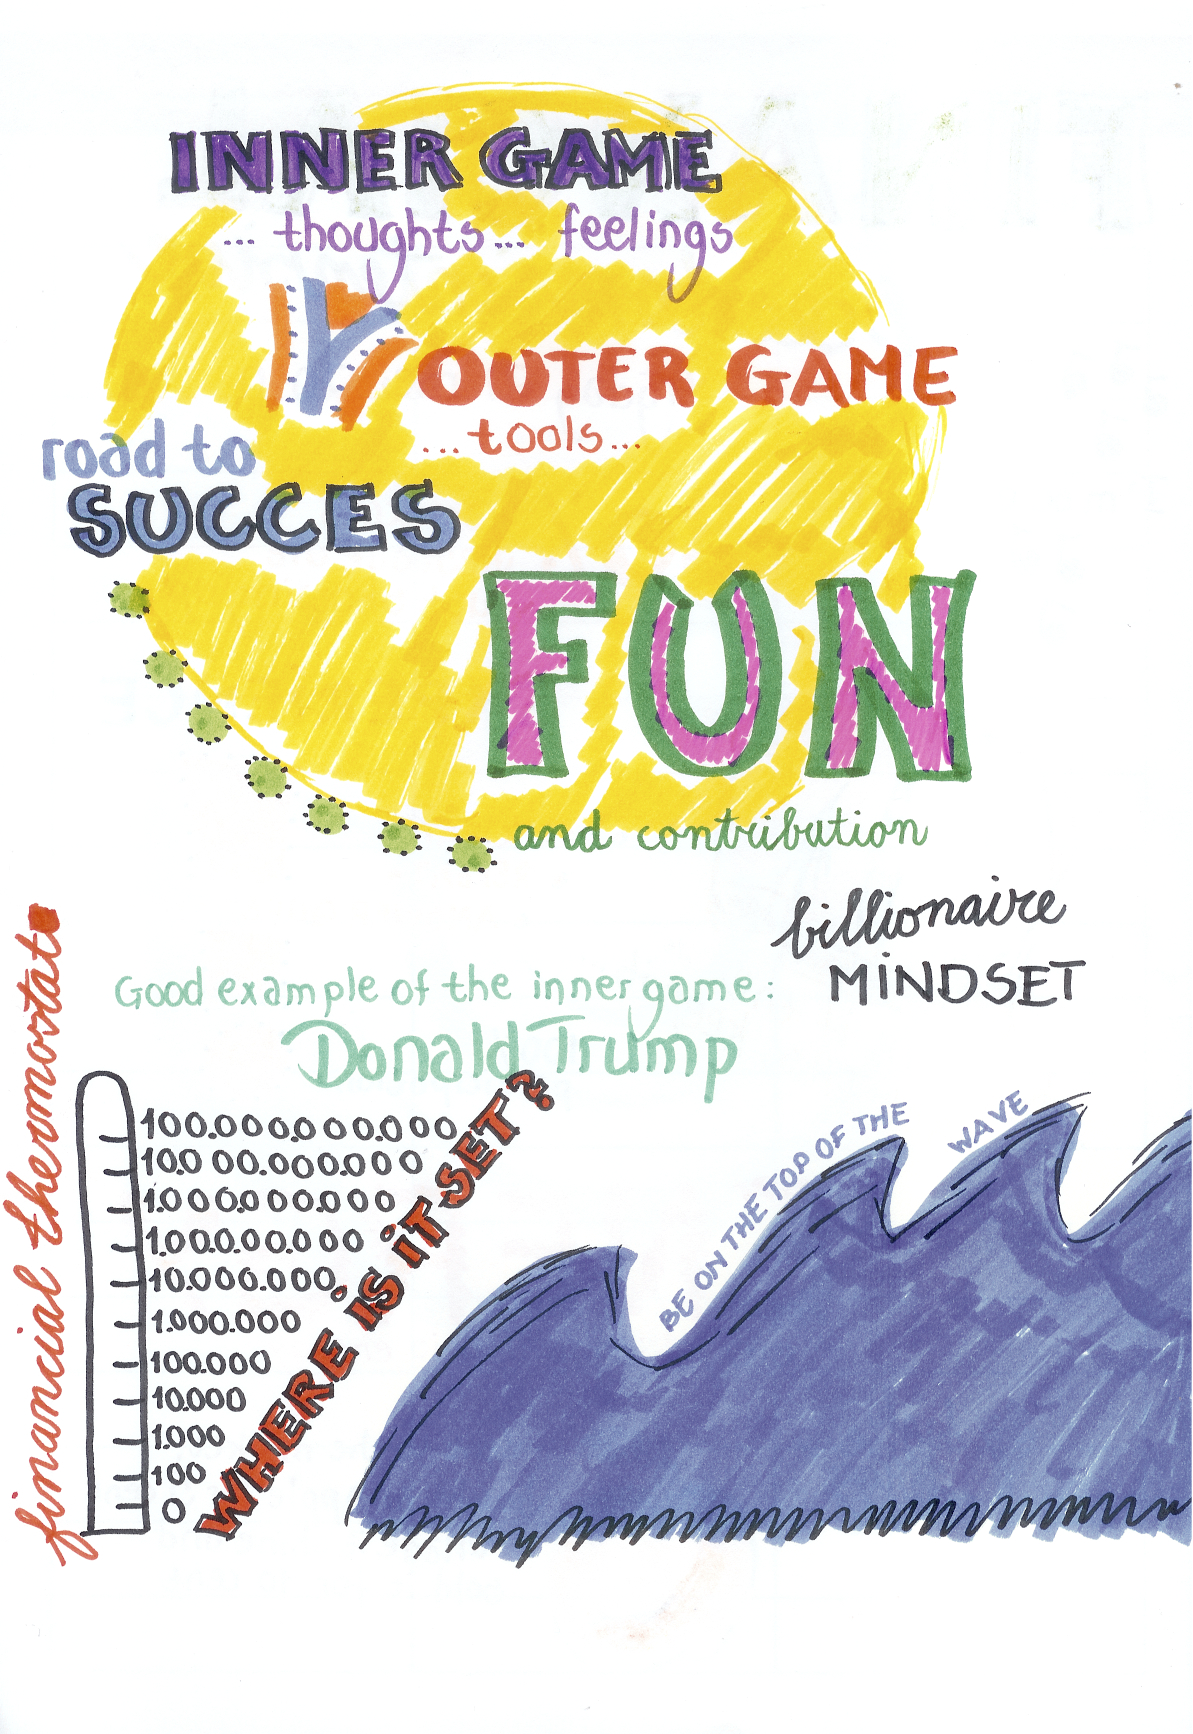 INNER GAME
... thoughts... feelings
OUTER GAME
...tools...
road to
SUCCES
FUN
and contribution
billionaire
MINDSET
Good example of the inner game:
Donald Trump
financial thermostat
100.000.000.000
10.000.000.000
1.000.000.000
1.00.0.00.000
10.000.000
1.000.000
100.000
10.000
1.000
100
0
WHERE IS IT SET?
BE ON THE TOP OF THE WAVE